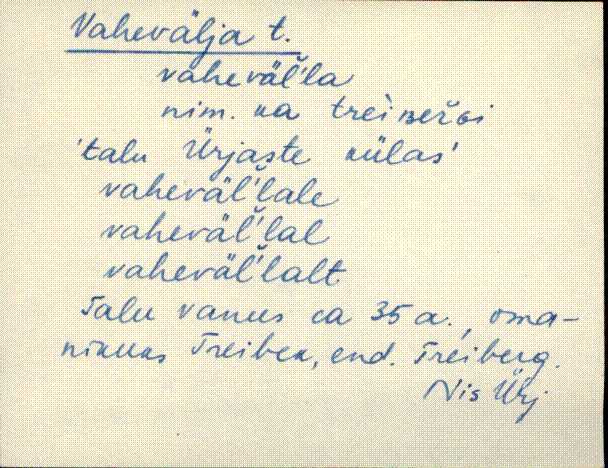 Vahevälja t.
vaheväĺ'la
nim. ka trèiʙer̆ǵi
'talu Ürjaste külas'
vaheväĺ'lale
vaheväĺ'lal
vaheväĺ'lalt
Talu vanus ca 35 a., oma-
nikuks Treibek, end. Treiberg.
Nis Ürj